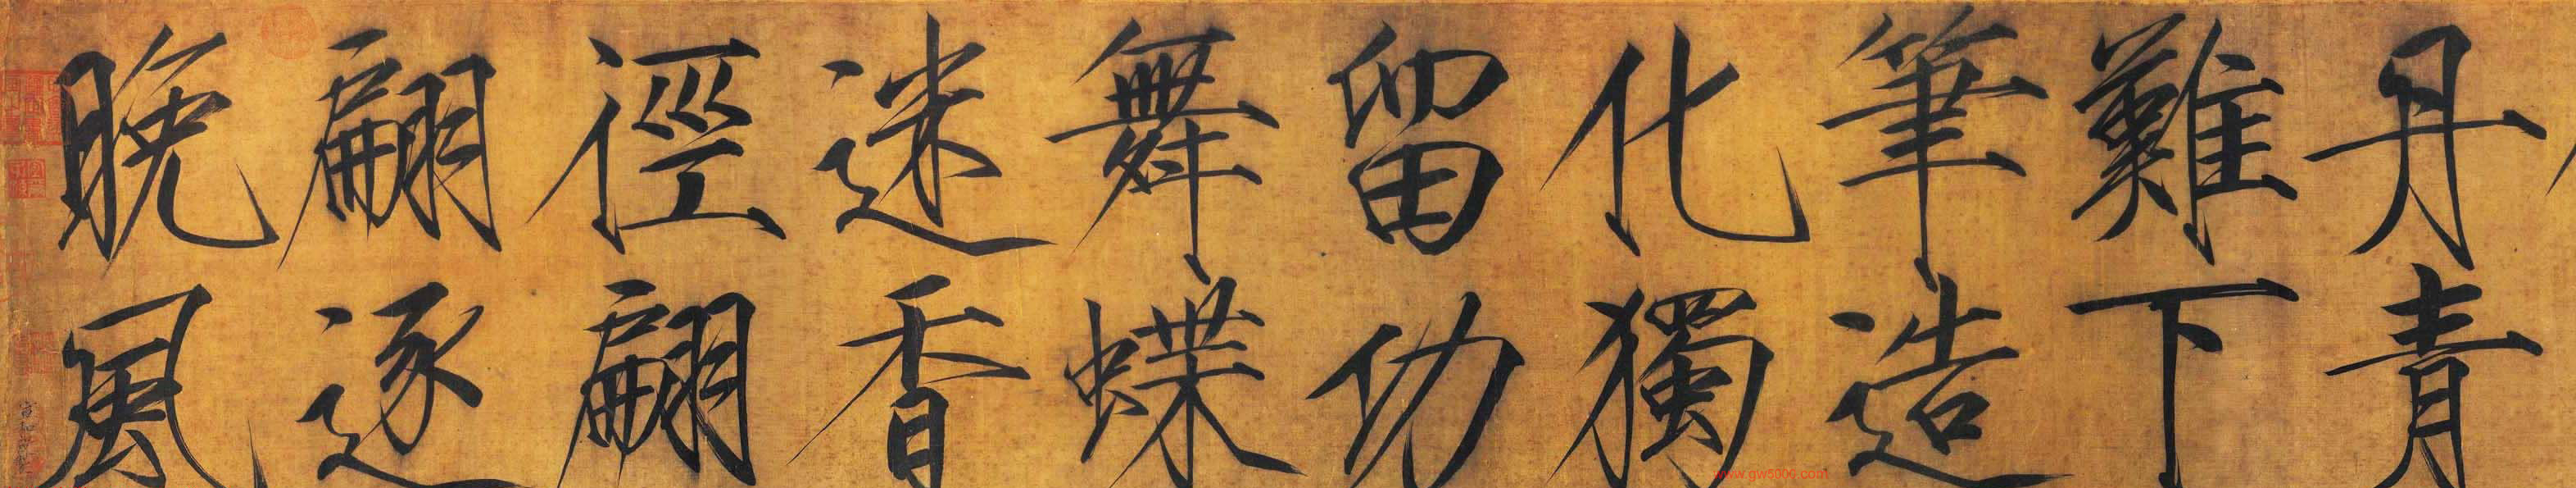 丹青
難下
筆造
化獨
留功
舞蝶
迷香
徑翩
翩逐
晚風
www.gw5006.com